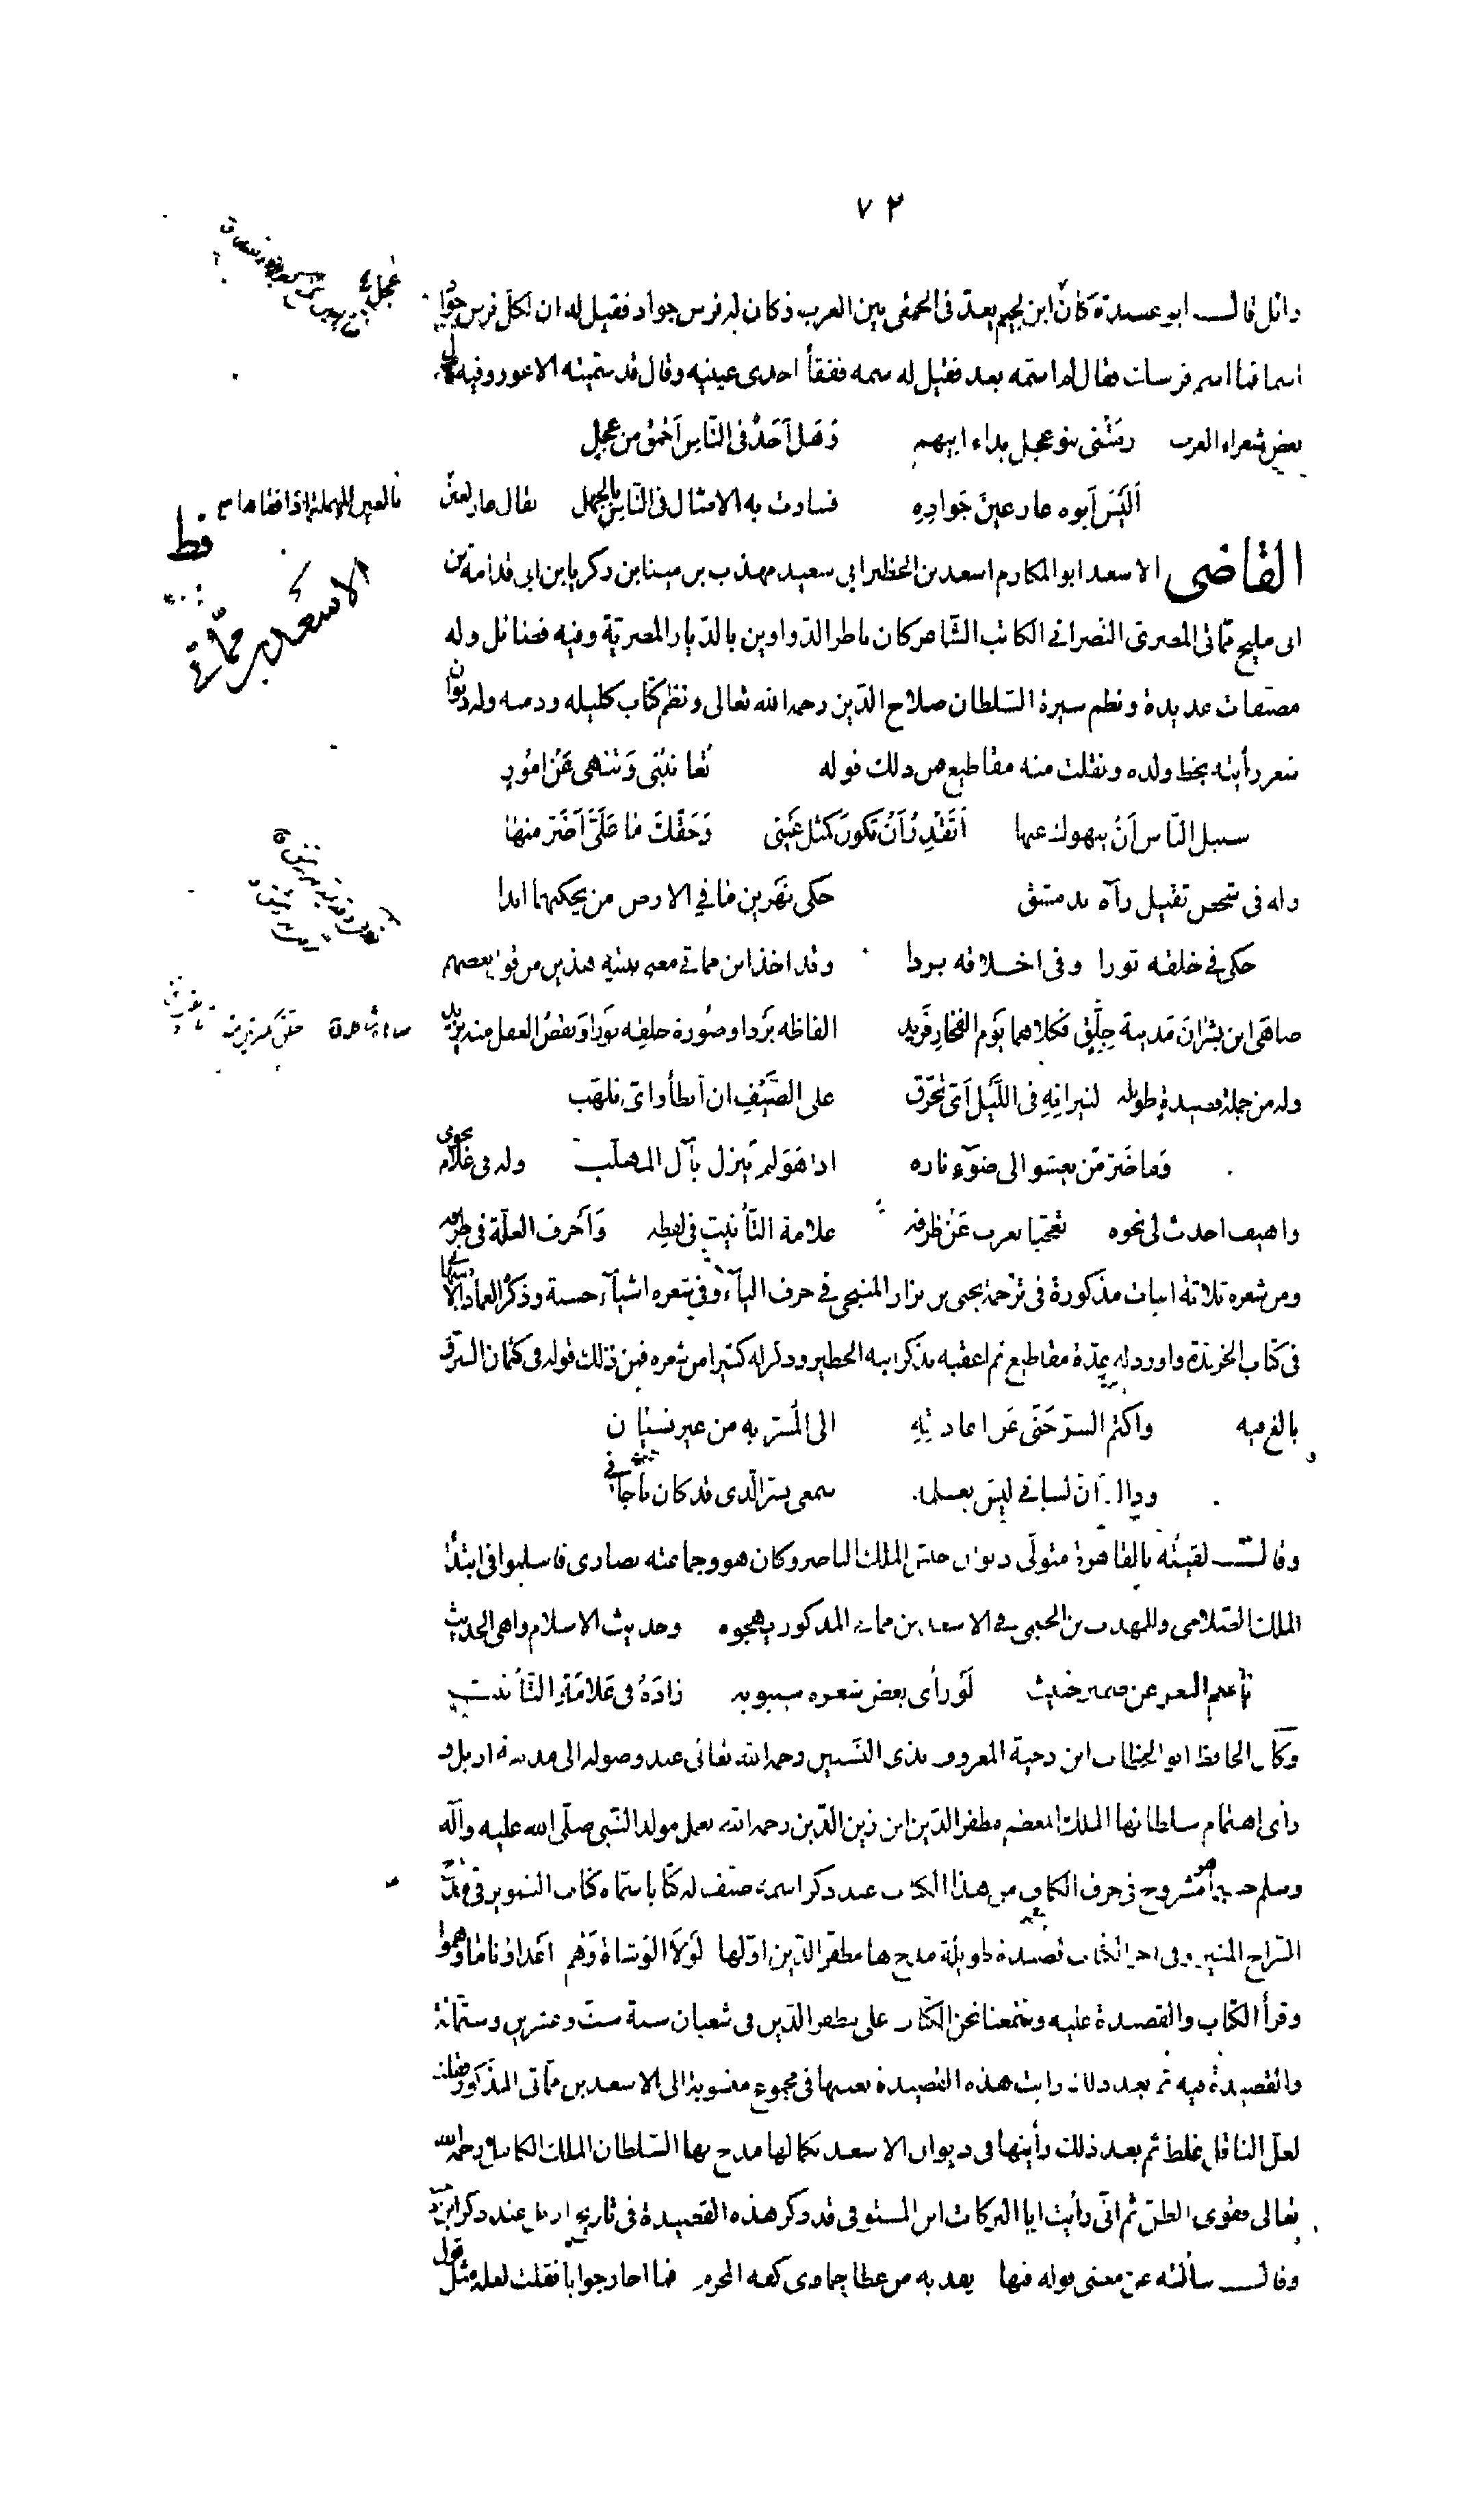 ٧٢
وائل قال ابو عبيدة كان ابن لجيم يعد فى الحمقى بين العرب وكان له فرس جواد فقيل له ان لكل فرس جواد
اسما فما اسم فرسك فقال لم اسمه بعد فقيل له سمه ففقأ احدى عينيه وقال قد سميته الاعور وفيه قال
بعض شعراء العرب رمتني بنو عجل بداء ابيهم وهل احد فى الناس احمق من عجل
اليس ابوه عار عين جواده فسارت به الامثال فى الناس بالجهل يقال عار العين
بالعين المهملة اذا فقاها
فقط
القاضى الاسعد ابو المكارم اسعد بن الخطير ابى سعيد مهذب بن مينا بن زكريا بن ابى قدامة بن
الاسعد بن مماتى
ابى مليح مماتى المصرى النصرانى الكاتب الشاعر كان ناظر الدواوين بالديار المصرية وفيه فضائل وله
مصنفات عديدة ونظم سيرة السلطان صلاح الدين رحمه الله تعالى ونظم كتاب كليله ودمنه وله ديوان
شعر رأيته بخط ولده ونقلت منه مقاطيع من ذلك قوله تعاتبنى وتنهى عن امور
سبيل الناس ان ينهوك عنها اتقدر ان تكون كمثل عينى وحقك ما على اضر منها
وله فى شخص ثقيل رآه بدمشق حكى نهرين ما فى الارض من يحكيهما ابدا
حكى فى خلقه ثورا وفى اخلاقه بردا وقد اخذ ابن مماتى معنى بيتيه هذين من قول بعضهم
ضاهى ابن بشران مدينة جلق فكلاهما يوم الفخار فريد الفاظه بردا وصورة خلقه ثورا ونقص العقل منه يزيد
وله من جملة قصيدة طويلة لنيرانه فى الليل اى تحرق على الضيف ان ابطأ واى تلهب
وما ضر من يعشو الى ضوء ناره اذا هو لم ينزل بآل المهلب وله فى غلام نحوى
واهيف احدث لى نحوه تعجبا يعرب عن ظرفه علامة التأنيث فى لفظه واحرف العلة فى طرفه
ومن شعره ثلاثة ابيات مذكورة فى ترجمة يحيى بن نزار المنبجى فى حرف الياء وفى شعره اشياء حسنة وذكره العماد الاصبهانى
فى كتاب الخريدة واورد له عدة مقاطيع ثم اعقبه بذكر ابيه الخطير وذكر له كثيرا من شعره فمن ذلك قوله فى كتمان السر
بالغ فيه واكتم السر حتى عن اعادته الى المسر به من غير نسيان
وذاك ان لسانى ليس يعلمه سمعى بسر الذى قد كان ناجانى
وقال لقيته بالقاهرة متولى ديوان جيش الملك الناصر وكان هو وجماعته نصارى فاسلموا فى ابتداء
الملك الصلاحى وللمهذب بن الخيمى فى الاسعد بن مماتى المذكور يهجوه وحديث الاسلام واهى الحديث
باسم الثغر عن ضمير خبيث لو رأى بعض شعره سيبويه زاده فى علامة التأنيث
وكان الحافظ ابو الخطاب ابن دحية المعروف بذى النسبين رحمه الله تعالى عند وصوله الى مدينة اربل و
رأى اهتمام سلطانها الملك المعظم مظفر الدين ابن زين الدين رحمه الله بعمل مولد النبى صلى الله عليه وآله
وسلم حسبما هو مشروح فى حرف الكاف من هذا الكتاب عند ذكر اسمه صنف له كتابا سماه كتاب التنوير فى مدح
السراج المنير وفى آخر الكتاب قصيدة طويلة مدح بها مظفر الدين اولها لولا الوشاة وهم اعداؤنا ما وهموا
وقرأ الكتاب والقصيدة عليه وسمعنا نحن الكتاب على مظفر الدين فى شعبان سنة ست وعشرين وستمائة
والقصيدة فيه ثم بعد ذلك رايت هذه القصيدة بعينها فى مجموع منسوبة الى الاسعد بن مماتى المذكور فقلت
لعل الناقل غلط ثم بعد ذلك رأيتها فى ديوان الاسعد بكمالها مدح بها السلطان الملك الكامل رحمه الله
تعالى فقوى الظن ثم انى رأيت ابا البركات ابن المستوفى قد ذكر هذه القصيدة فى تاريخ اربل عند ذكر ابن دحية
وقال سألته عن معنى قوله فيها يفديه من عطا جمادى كفه المحرم فما احار جوابا فقلت لعله مثل قول